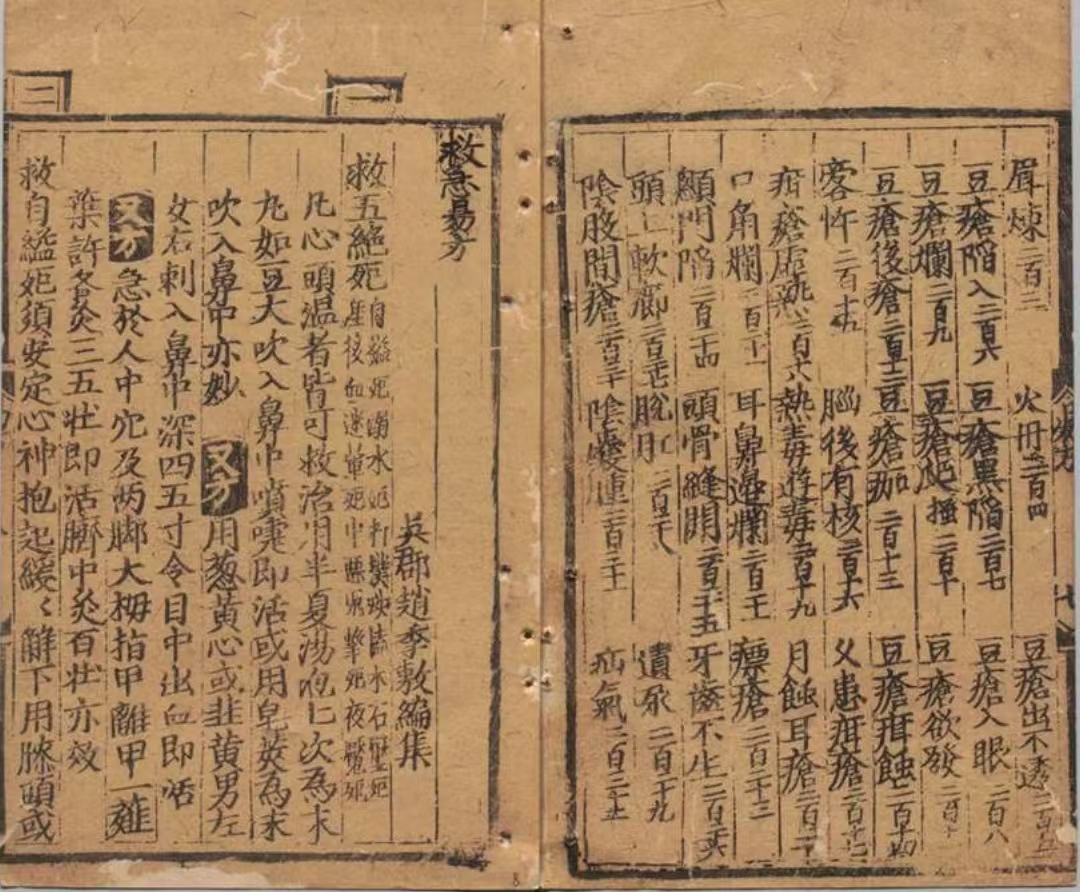 眉煉二百三 火丹二百四 豆瘡出不透二百五
豆瘡陷入二百六 豆瘡黑陷二百七 豆瘡入眼二百八
豆瘡爛二百九 豆瘡爬搔二百十 豆瘡欲發
豆瘡後瘡 豆瘡痂二百十三 豆瘡疳蝕二百十四
客忤二百十五 腦後有核二百十六 久患疳瘡二百十七
疳瘡虛熱二百十八 熱毒遊毒二百十九 月蝕耳瘡二百二十
口角爛二百二十一 耳鼻邊爛 瘭瘡二百二十三
顖門陷二百二十四 頭骨縫開二百二十五 牙齒不生二百二十六
頭上軟癤二百二十七 脫肛二百二十八 遺尿二百二十九
陰股間瘡二百三十 陰囊腫二百三十一 疝氣二百三十二
一
救急易方
吳郡趙季敷編集
救五絕死自縊死溺水死打撲跌磕木石壓死産後血迷暈死中惡鬼擊死夜魘死
凡心頭溫者皆可救治用半夏湯泡七次為末
丸如豆大吹入鼻中噴嚏即活或用皂莢為末
吹入鼻中亦妙 又方 用葱黃心或韭黃男左
女右刺入鼻中深四五寸令目中出血即活
又方 急於人中穴及两脚大拇指甲離甲一薤
葉許各灸三五壮即活臍中灸百壮亦効
二
救自縊死須安定心神抱起緩〻解下用膝頭或